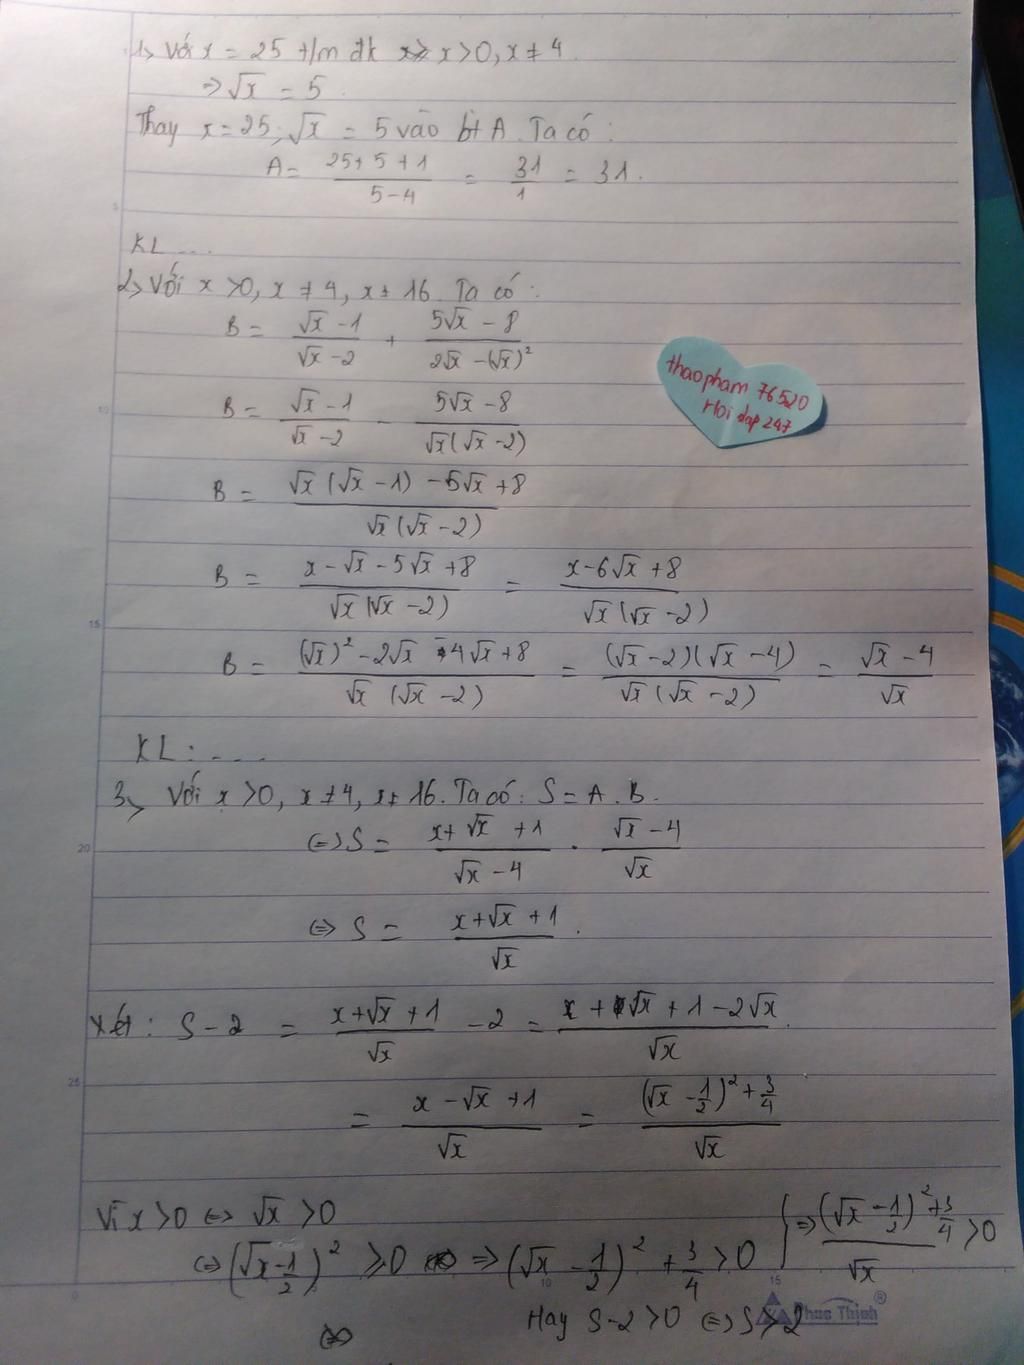 1, Với x = 25 t/m đk x > 0, x ≠ 4.
⇒ √x = 5.
Thay x = 25; √x = 5 vào bt A. Ta có:
A = (25 + 5 + 1)/(5 - 4) = 31/1 = 31.
KL ...
2, Với x > 0, x ≠ 4, x ≠ 16. Ta có:
B = (√x - 1)/(√x - 2) + (5√x - 8)/(2√x - (√x)²)
B = (√x - 1)/(√x - 2) - (5√x - 8)/(√x(√x - 2))
B = (√x(√x - 1) - 5√x + 8)/(√x(√x - 2))
B = (x - √x - 5√x + 8)/(√x(√x - 2)) = (x - 6√x + 8)/(√x(√x - 2))
B = ((√x)² - 2√x - 4√x + 8)/(√x(√x - 2)) = ((√x - 2)(√x - 4))/(√x(√x - 2)) = (√x - 4)/√x
KL: ....
3, Với x > 0, x ≠ 4, x ≠ 16. Ta có: S = A . B.
⇔ S = (x + √x + 1)/(√x - 4) . (√x - 4)/√x
⇔ S = (x + √x + 1)/√x.
Xét: S - 2 = (x + √x + 1)/√x - 2 = (x + √x + 1 - 2√x)/√x.
= (x - √x + 1)/√x = ((√x - 1/2)² + 3/4)/√x
Vì x > 0 ⇔ √x > 0
⇔ (√x - 1/2)² ≥ 0 ⇒ (√x - 1/2)² + 3/4 > 0 } ⇒ ((√x - 1/2)² + 3/4)/√x > 0
Hay S - 2 > 0 ⇔ S > 2
thaopham 76520
Hoi dap 247
Phuc Thinh®